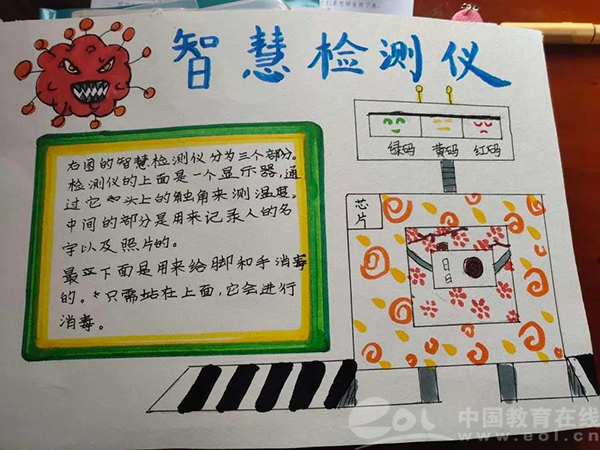 智慧检测仪
右图的智慧检测仪分为三个部分。
检测仪的上面是一个显示器，通
过它头上的触角来测温度。
中间的部分是用来记录人的名
字以及照片的。
最下面是用来给脚和手消毒
的。只需站在上面，它会进行
消毒。
绿码 黄码 红码
芯片
eol 中国教育在线
www.eol.cn